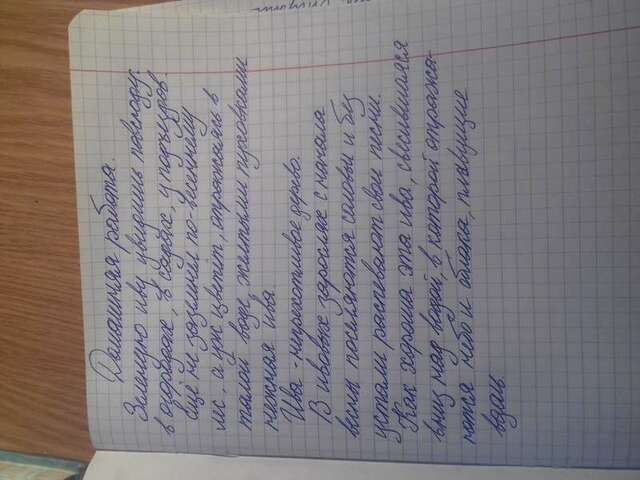 Домашняя работа.
Зеленую иву увидишь повсюду:
в огородах, в садах, у подъездов
Ещё не зазеленел по-весеннему
лес, а уж цветёт, отражаясь в
талой воде, желтыми пуховками
нежная ива.
Ива - неприхотливое дерево.
В ивовых зарослях с начала
весны поселяются соловьи и без
устали распевают свои песни.
Как хороша эта ива, свесившаяся
вниз над водой, в которой отража-
ются небо и облака, плывущие
вдаль.